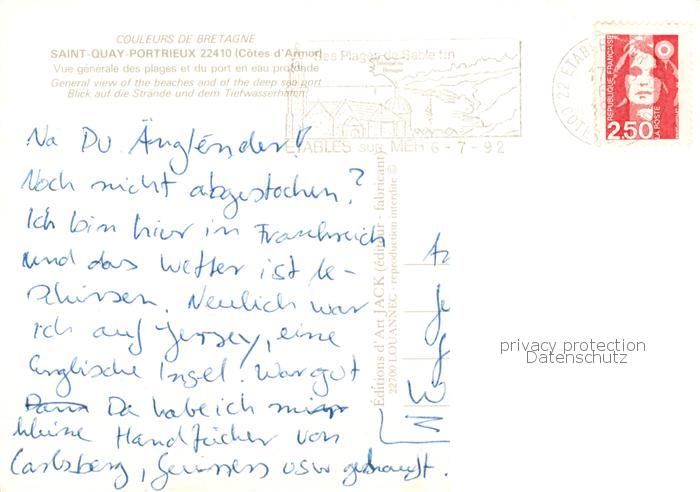 COULEURS DE BRETAGNE
SAINT-QUAY-PORTRIEUX 22410 (Côtes d'Armor)
Vue générale des plages et du port en eau profonde
General view of the beaches and of the deep sea port
Blick auf die Strände und dem Tiefwasserhafen
Ses Plages de Sable fin
ETABLES sur MER 6-7-92
22 ETABLES
REPUBLIQUE FRANÇAISE
LA POSTE
2,50
Na Du Ängländer!
Noch nicht abgestochen?
Ich bin hier in Frankreich
und das Wetter ist be-
schissen. Neulich war
ich auf Jersey, eine
englische Insel. War gut
Da habe ich
kleine Handtücher von
Carlsberg, Guinness usw gekauft.
Éditions d'Art JACK (éditeur - fabricant)
22700 LOUANNEC - reproduction interdite ©
privacy protection
Datenschutz